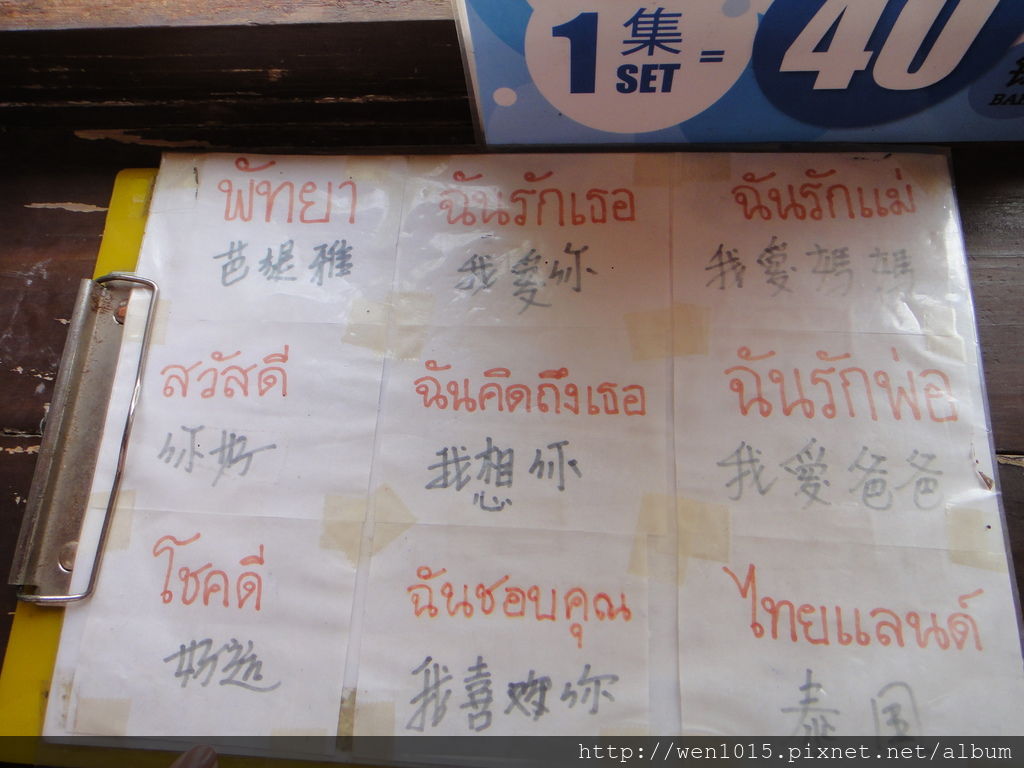 1 集 = 40
SET
พัทยา
芭堤雅
ฉันรักเธอ
我愛你
ฉันรักแม่
我愛媽媽
สวัสดี
你好
ฉันคิดถึงเธอ
我想你
ฉันรักพ่อ
我愛爸爸
โชคดี
好运
ฉันชอบคุณ
我喜欢你
ไทยแลนด์
泰国
http://wen1015.pixnet.net/album